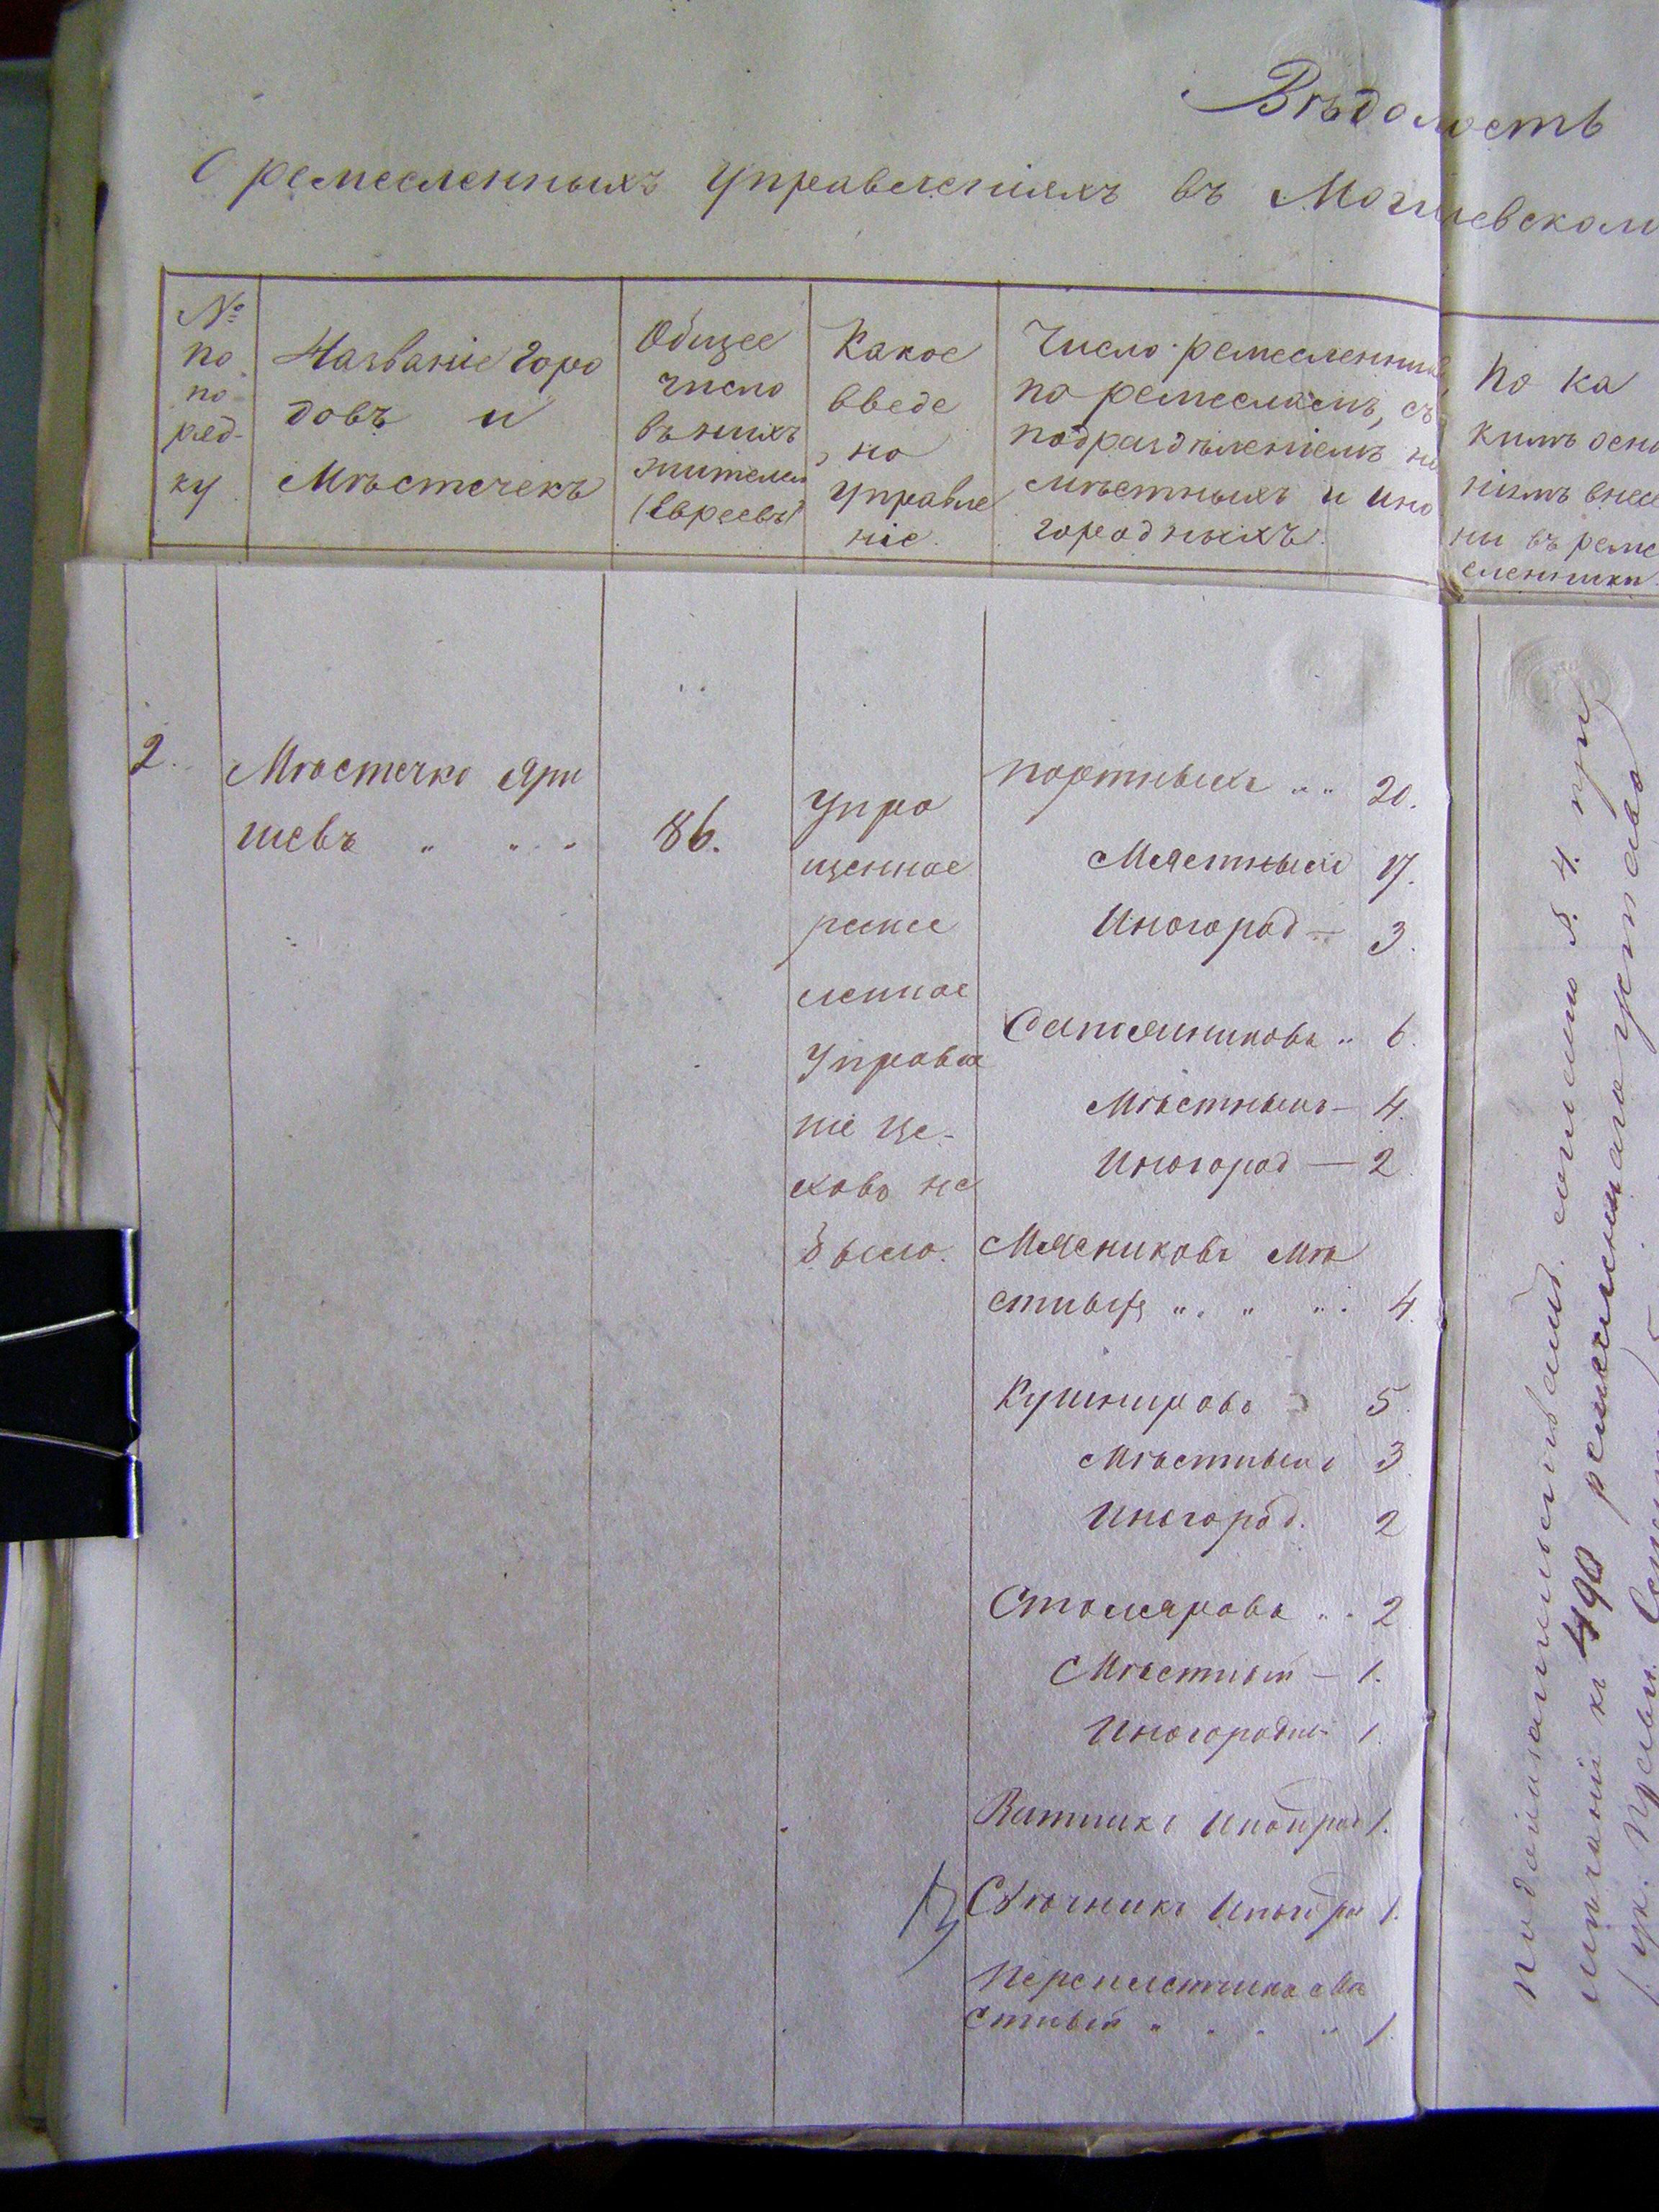 Вѣдомость
О ремесленныхъ управленіяхъ въ Могилевском
№
по
по-
ряд-
ку
Названіе Горо
довъ и
Мѣстечекъ
Общее
число
въ нихъ
жителей
(Евреевъ)
Какое
введе
но
Управле
ніе.
Число ремесленник
по ремесламъ, съ
подраздѣленіемъ на
мѣстныхъ и ино
городныхъ.
по ка
кимъ осно
ніямъ внесе
ны въ реме
сленники.
2.
Мѣстечко Яры
шевъ „ „ „
86.
Упро
щенное
реме
сленное
Управле
ніе Це-
ховъ не
было.
портныхъ „ „ 20.
Мѣстныхъ 17.
Иногород — 3.
Сапожниковъ „ 6.
Мѣстныхъ — 4.
Иногород — 2
Мясниковъ Мѣ
стныхъ „ „ „ 4.
Кушнировъ 5
Мѣстныхъ 3
Иногород. 2
Столяровъ „ 2
Мѣстный — 1.
Иногородный 1.
Ватникъ Иногород 1.
Свѣчникъ Иногород 1.
Переплетчикъ Мѣ
стный „ „ „ „ 1
согласно §. 4. при
мѣчаній къ 490 ремесленнаго устава